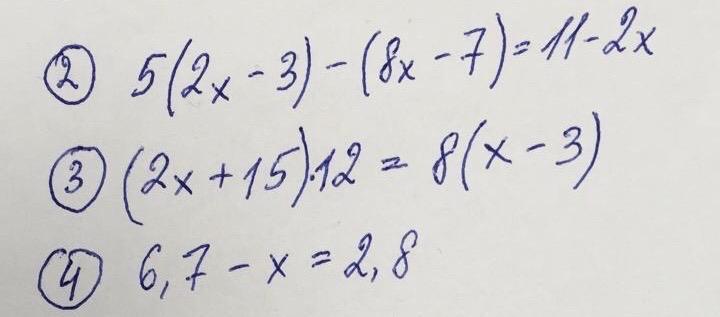 ② 5(2x - 3) - (8x - 7) = 11 - 2x
③ (2x + 15)·12 = 8(x - 3)
④ 6,7 - x = 2,8